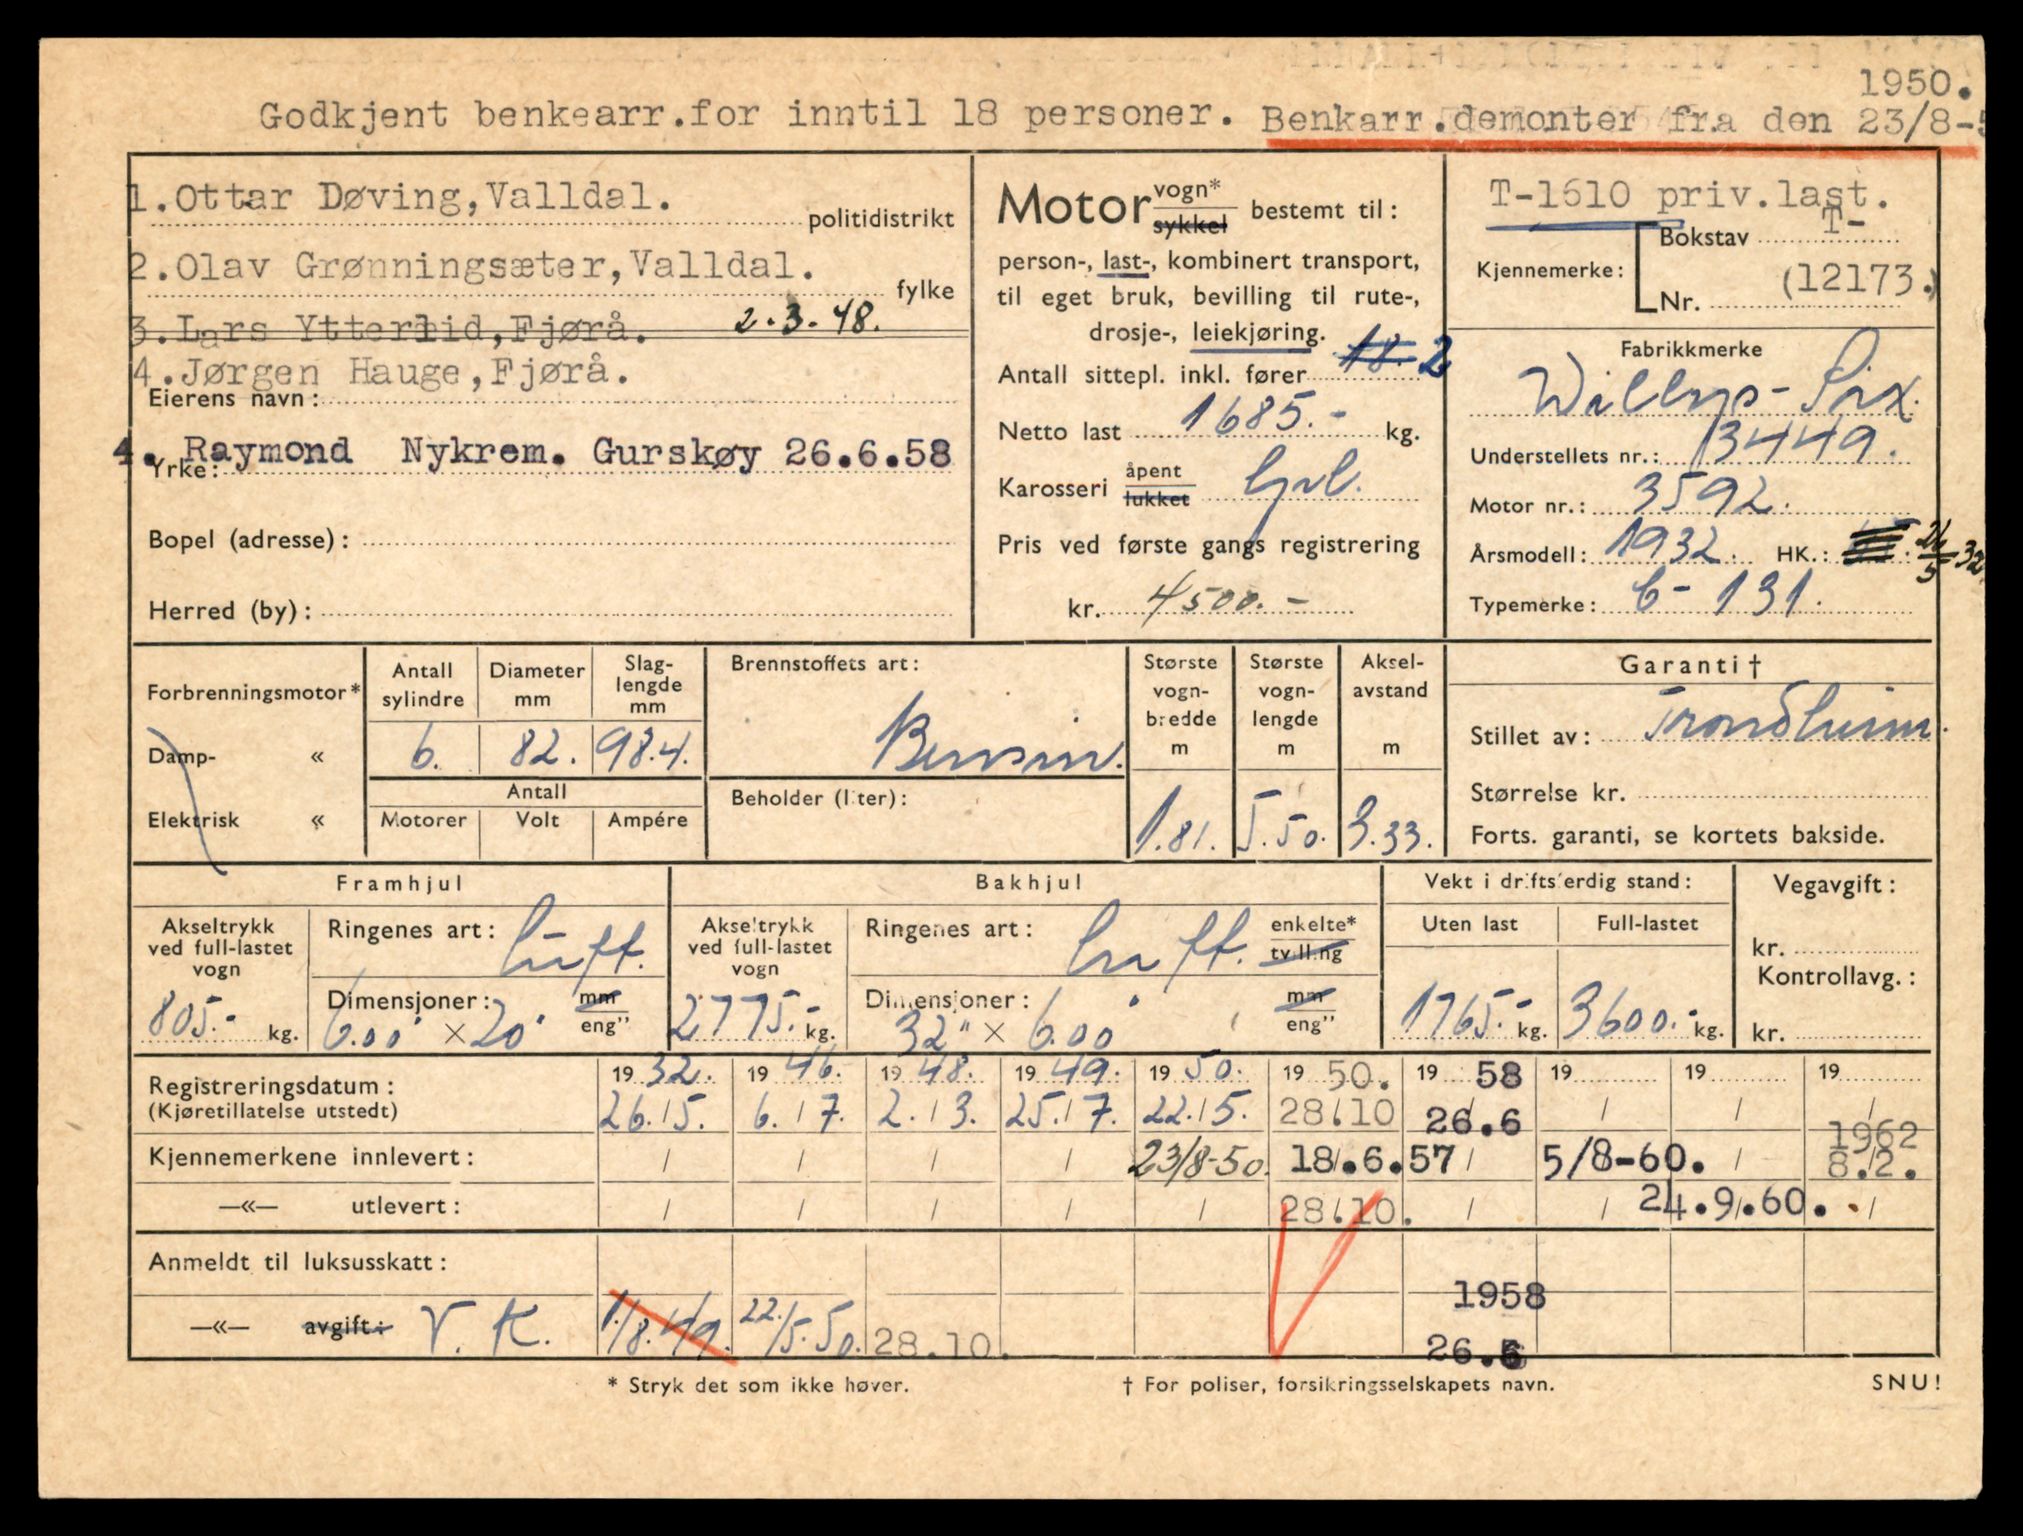 1950.
Godkjent benkearr.for inntil 18 personer. Benkarr.demonter fra den 23/8-5
1.Ottar Døving,Valldal.
politidistrikt
2.Olav Grønningsæter,Valldal.
fylke
3.Lars Ytterlid,Fjørå. 2.3.48.
4.Jørgen Hauge,Fjørå.
Eierens navn:
4. Raymond Nykrem. Gurskøy 26.6.58
Yrke:
Bopel (adresse):
Herred (by):
Motor vogn* sykkel bestemt til:
person-, last-, kombinert transport,
til eget bruk, bevilling til rute-,
drosje-, leiekjøring.
Antall sittepl. inkl. fører 18. 2
Netto last 1685.- kg.
Karosseri åpent lukket
Pris ved første gangs registrering
kr. 4500.-
T-1610 priv.last.
Bokstav T-
Kjennemerke:
Nr. (12173.)
Fabrikkmerke
Willys-Six.
Understellets nr.: 13449.
Motor nr.: 3592.
Årsmodell: 1932. HK.: 26/5-32
Typemerke: C-131.
Forbrenningsmotor*
Damp- «
Elektrisk «
Antall sylindre
6.
Diameter mm
82.
Slag-lengde mm
98.4.
Antall
Motorer Volt Ampére
Brennstoffets art:
Bensin.
Beholder (liter):
Største vogn-bredde m
1.81.
Største vogn-lengde m
5.50.
Aksel-avstand m
3.33.
Garanti†
Stillet av: Trondheim.
Størrelse kr.
Forts. garanti, se kortets bakside.
Framhjul
Akseltrykk ved full-lastet vogn
805.- kg.
Ringenes art: Luft.
Dimensjoner: mm eng”
6.00 × 20
Bakhjul
Akseltrykk ved full-lastet vogn
2775.- kg.
Ringenes art: Luft. enkelte* tvilling
Dimensjoner: mm eng”
32" × 6.00
Vekt i driftsferdig stand:
Uten last Full-lastet
1765.- kg. 3600.- kg.
Vegavgift:
kr.
Kontrollavg.:
kr.
Registreringsdatum: 19 32. 19 46. 19 48. 19 49. 19 50. 19 50. 19 58 19 19 19
(Kjøretillatelse utstedt) 26./5. 6./7. 2./3. 25./7. 22./5. 28.10 26.6 / / /
1962
Kjennemerkene innlevert: / / / / 23/8-50. 18.6.57 / 5/8-60. / 8.2.
—«— utlevert: / / / / / 28.10. / / 24.9.60. /
Anmeldt til luksusskatt:
1958
—«— avgift: V. K. 1./8.49. 22./5.50. 28.10. 26.6
* Stryk det som ikke høver.
† For poliser, forsikringsselskapets navn.
SNU!